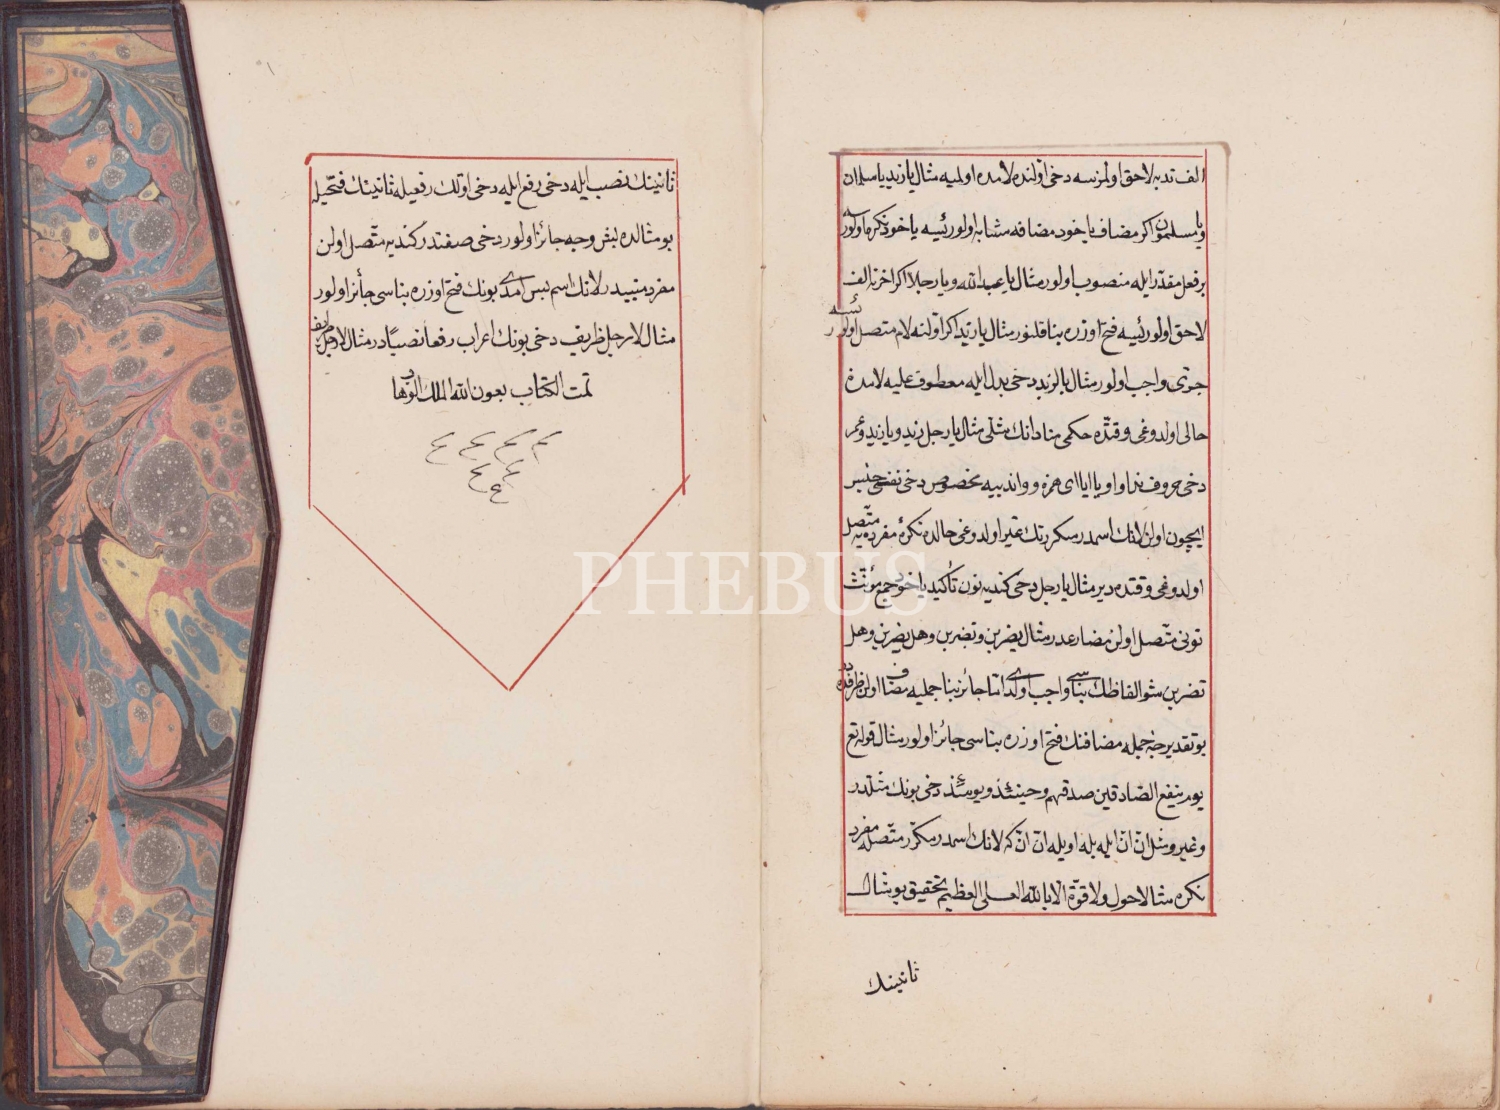 الف ندبه لاحق اولمزسه دخی اولنده لامده اولمیه مثال یا زید یا مسلمان
ویا مسلمون اکر مضاف یاخود مضافه مشابه اولورسه یاخود نکره اولورسه
بر فعل مقدر ایله منصوب اولور مثال یا عبد الله و یا رجلا اکر اخرنه الف
لاحق اولورسه فتح اوزره بنا قلنور مثال یا زیدا اکر اولنه لام متصل اولورسه
جری واجب اولور مثال یا لزید دخی بدل ایله معطوف علیه لامدن
خالی اولدوغی وقتده حکمی منادانك مثلی مثال یا رجل زید و یا زید وعمر
دخی حروف ندا و او یا ایا ای همزه و واندبیه مخصوص دخی نفی جنس
ایچون اولن لانك اسمدر مکررنك غیر اولدوغی حالده نکرۀ مفرده یه متصل
اولدوغی وقتده دیر مثال یا رجل دخی کندیه نون تأکید یاخود جمع مؤنث
نونی متصل اولن مضارعدر مثال یضربن وتضربن وهل یضربن وهل
تضربن شو الفاظك بناسی واجب اولدی اما جائز بنا جملیه مضاف اولن ظرفدر
بو تقدیرجه جمله مضافنك فتح اوزره بناسی جائز اولور مثال قوله تع
یوم ینفع الصادقین صدقهم وحینئذ ویومئذ دخی بونك مثلدر
وغیر ومثل ان ان ایله بله اویله ان ان که لانك اسمدر مکرر متصله مفرد
نکره مثا لاحول ولا قوة الا بالله العلی العظیم تحقیق بو مثال
ثانینك
ثانینك نصب ایله دخی رفع ایله دخی اولك رفعیله ثانینك فتحیله
بو مثالده بش وجه جائز اولور دخی صفتدر کندیه متصل اولن
مفرد مبنیدر لانك اسم بس امدی بونك فتح اوزره بناسی جائز اولور
مثال لا رجل ظریف دخی بونك اعراب رفعا نصبادر مثال لا رجل ظریف
تمت الكتاب بعون الله الملك الوهاب
PHEBUS